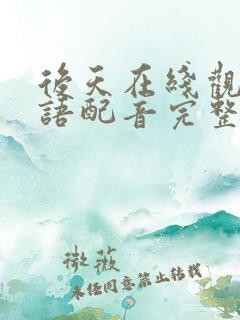 後天在綫觀
語配音完整
微薇
未经同意禁止转载